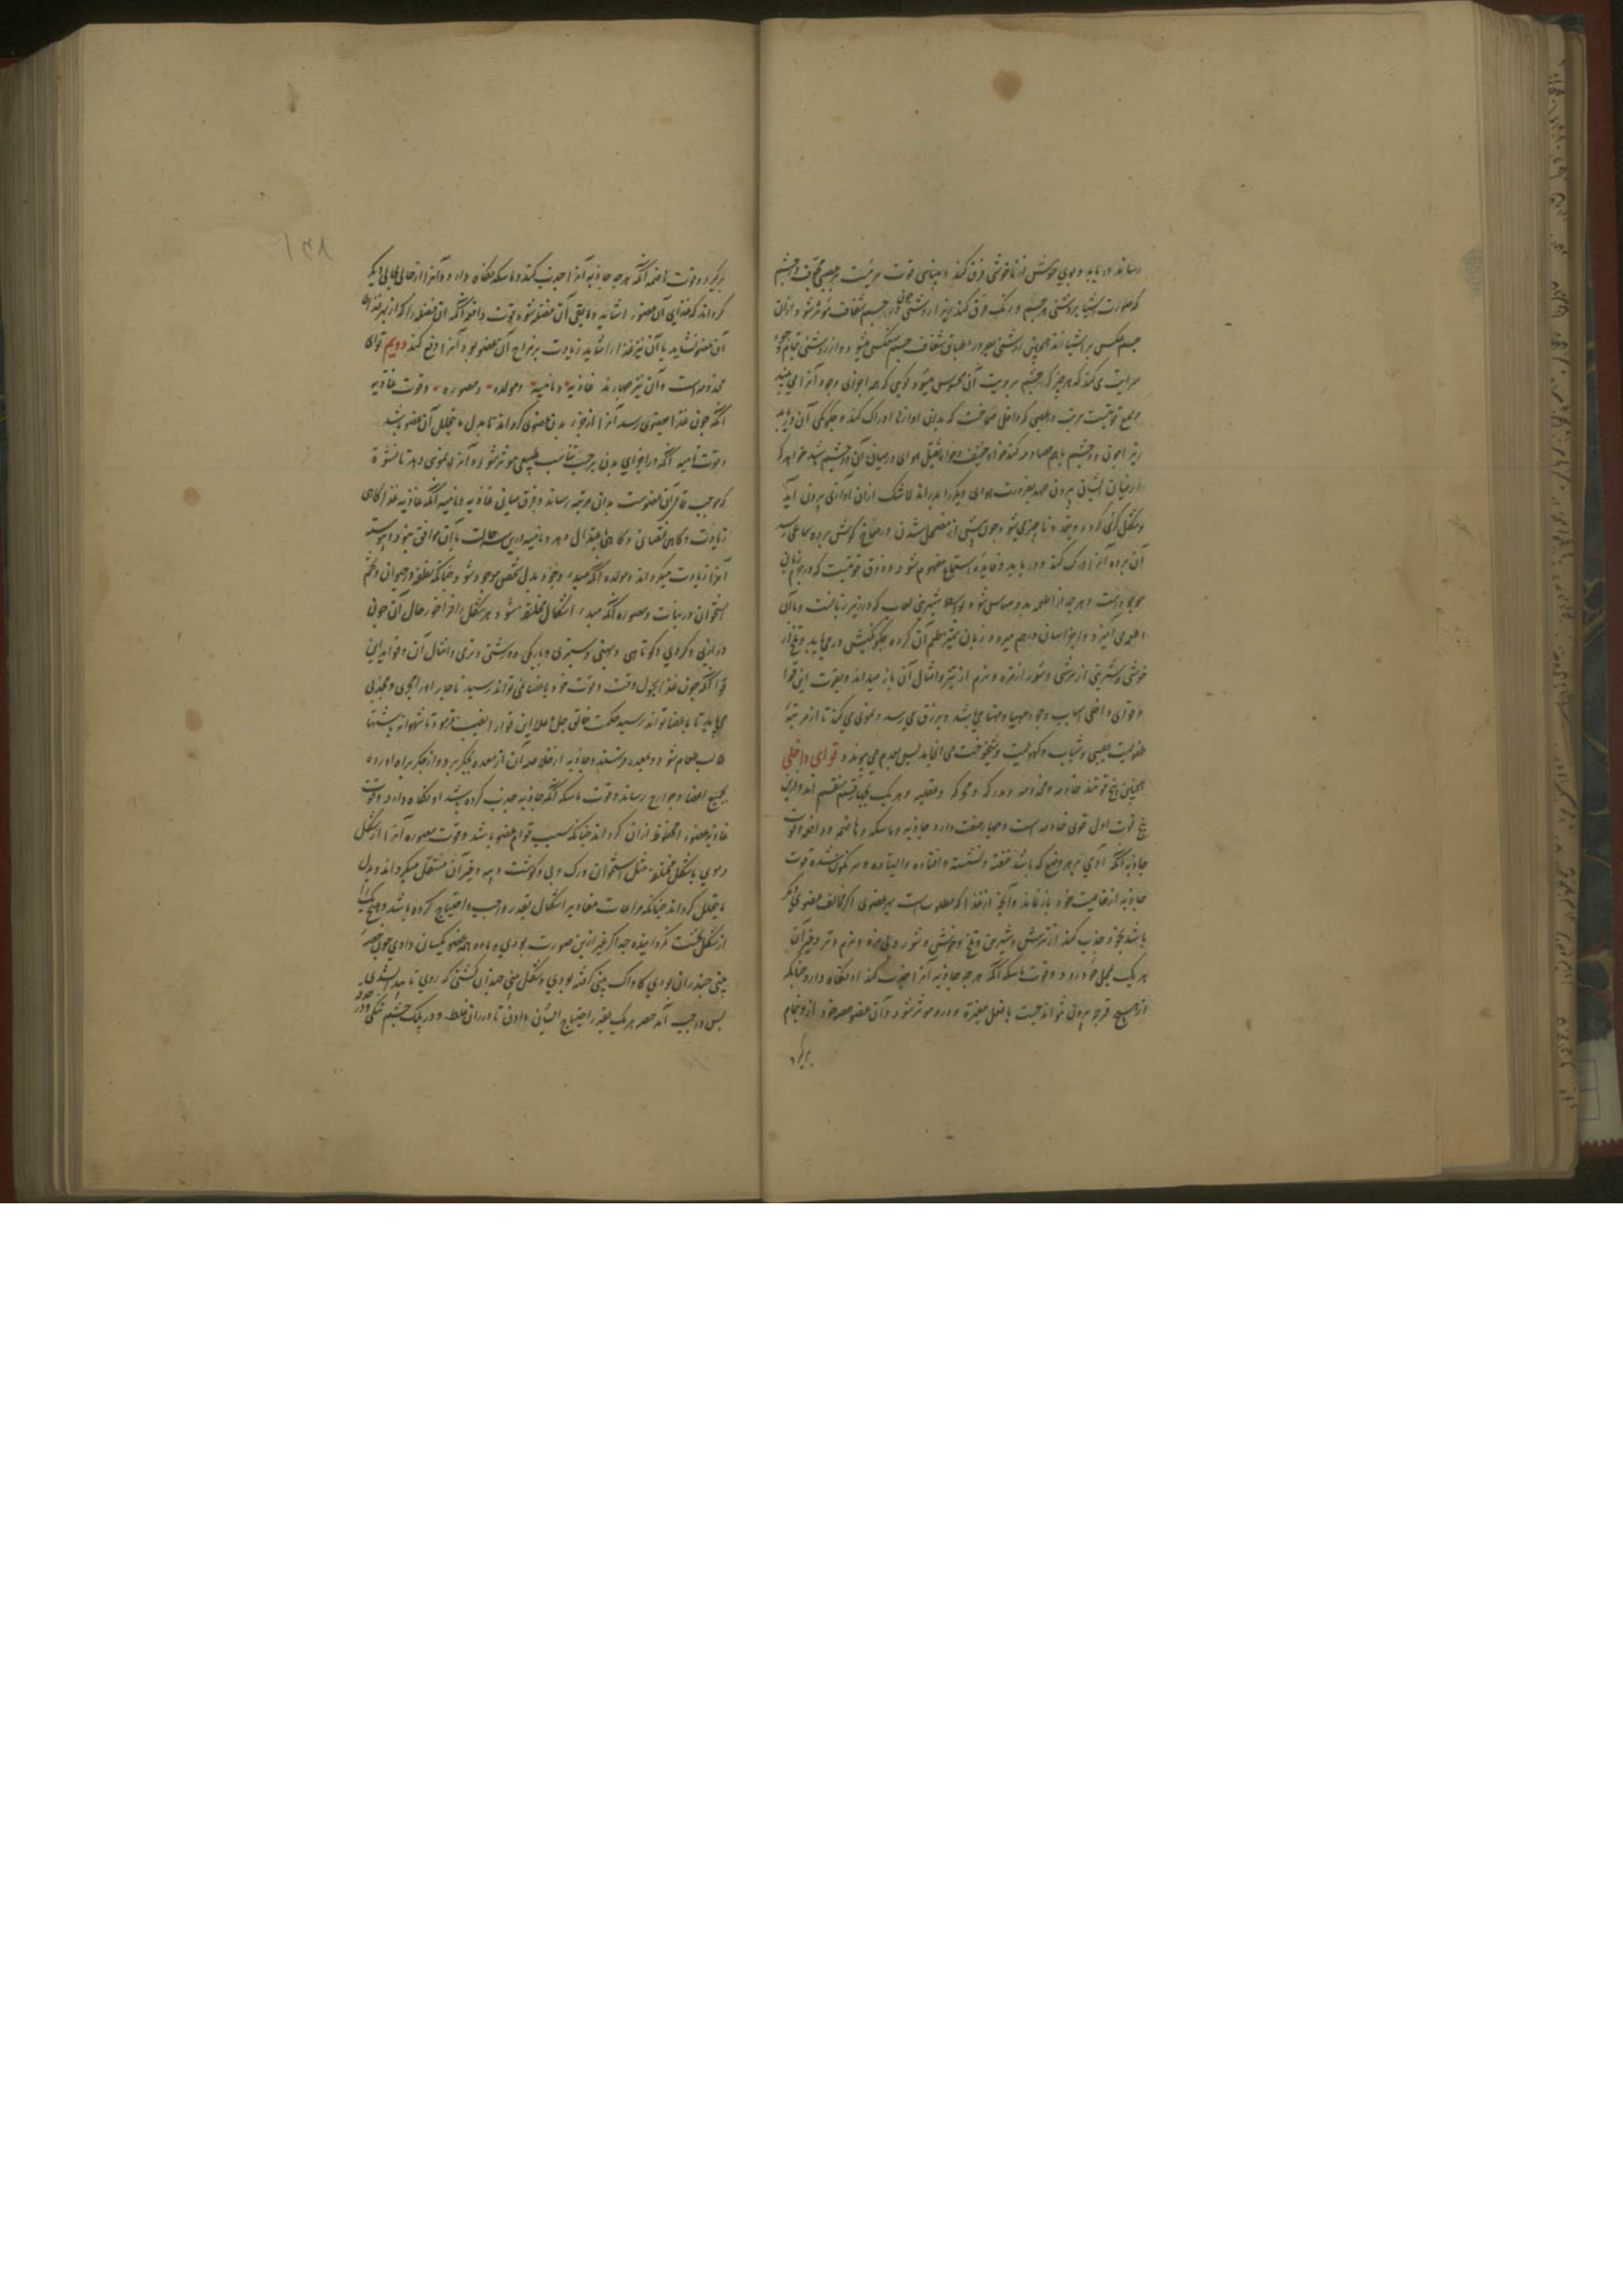 رساند دریابد و بوی خوش از ناخوش فرق کند و بینایی قوت مرئیست در عصبی مجوف در چشم
که صورت اشیا بروشنی در چشم و رنگ فرق کند زیرا روشنی چون در جسم شفاف موثر شود از آن
جسم عکس بر اشیا اندازد همچنین روشنی بصر در اطباق شفاف جسم منعکس میشود و از روشنی تمام
سرایت می کند که هر چیز که در چشم برویت آن محسوس میشود گویی که همه اجزای وجود آنرا می بیند
و سمع قوتیست مرتب در عصبی که داخل صماخست که بدان آواز را ادراک کند و چگونگی آن دریابد
زیرا چون دو جسم باهم مصادمه کنند خواه خفیف و خواه ثقیل هوای در میان آن دو جسم باشد خواهد که
از میان ایشان بیرون جهد بضرورت هوای دیگر را بدراند لاشک از آن آوازی بیرون آید
و متشکل کرد و موج و ناچیز میشود چون پیش از مضمحل شدن در صماخ گوش بود سماعی رسد
آن پرده آنرا درک کند و دریابد و فایده استماع مفهوم شود و ذوق قوتیست که در جرم زبان
موجود است و هر چه از اطعمه بدو مماس شود بواسطه شیرینی لعاب که در زیر زبانست و با آن
طعم می آمیزد و اجزا ایشان درهم میرود و زبان تمیز طعم آن کرده چگونگیش در می یابد و تلخ از
خوش و شیرین از ترش و شور از مزه و نرم از تیز و امثال آن باز میداند و بقوت این قوا
و قوای داخلی اسباب وجود مهیا و مهنا می باشد و برزق می رسد و نمو می کند تا از مرتبه
طفولیت بصبی و شباب و کهولیت و شیخوخت می انجامد پس بعدم می پیوندد قوای داخلی
همچنین پنج قوتند خادمه و مخدومه و مدرکه و محرکه و عقلیه و هر یک بچهار قسم منقسم اند و ازین
پنج قوت اول قوی خادمه است و چهار صفت دارد جاذبه و ماسکه و هاضمه و دافعه و قوت
جاذبه آنکه آدمی بهر وضع که باشد خفته و نشسته و افتاده و ایستاده و سرنگون شده قوت
جاذبه از خاصیت خود باز نماند و آنچه از غذا که مطلوبست بهر عضوی اگر مخالف عضوی دیگر
باشد بخود جذب کند از ترش و شیرین و تلخ و خوش و شور و بی مزه و نرم و تر و غیر آن
هر یک بمحل خود رود و قوت ماسکه آنکه هر چه جاذبه آنرا جذب کند او نگاه دارد چنانکه
از هیچ فرجه بیرون نتواند جست تا فعل مغیره در و موثر شود و آن عضو حصه خود از و تمام
برگیرد
۱۵۱
برگیرد و قوت هاضمه آنکه هر چه جاذبه آنرا جذب کند و ماسکه نگاه دارد و آنرا از حالی بحالی دیگر
گرداند که غذای آن عضو را شاید و مابقی آن فضله شود و قوت دافعه آنکه آن فضله را که از بهر غذای
آن عضو نشاید یا آن نیز غذا را شاید زیادت بر مزاج آن عضو بود آنرا دفع کند دویم قوای
مخدومه است و آن نیز چهارند غاذیه و نامیه و مولده و مصوره و قوت غاذیه
آنکه چون غذا بعضوی رسد آنرا از جزء بدن عضوی گرداند تا بدل ما یتحلل آن عضو باشد
و قوت نامیه آنکه در اجزای بدن بر حسب تناسب طبیعی موثر شود و آنرا نموی دهد تا نشوه
که موجب تمامی آن عضوست بدان مرتبه رساند و فرق میان غاذیه و نامیه آنکه غاذیه غذا گاهی
زیادت و گاهی نقصان و گاهی اعتدال دهد و نامیه درین سه حالت با آن موافق نبود و پیوسته
آنرا زیادت میگرداند و مولده آنکه مبداء وجود بدل شخص موجود شود چنانکه نطفه در حیوان و تخم
و استخوان در نبات و مصوره آنکه مبداء اشکال مختلفه شود و هر شکلی را فراخور حال آن چون
درازی و گردی و کوتاهی و پهنی و ستبری و باریکی و درشتی و نرمی و امثال آن و فواید این
قوا آنکه چون غذا بحول وقت و قوت خود باعضا نمی تواند رسید ناچار او را مجری و مجذبی
می باید تا باعضا تواند رسید حکمت خالق جل و علا این قوا را بفیض فرمود تا شهوانیه باشتها
طالب طعام شود و بمعده فرستد و جاذبه از خلاصه آن از معده بجگر برد و از جگر براه اورده
بجمیع اعضا و جوارح رساند و قوت ماسکه آنکه جاذبه جذب کرده باشد او نگاه دارد و قوت
غاذیه عضو را محظوظ از آن گرداند چنانکه سبب قوام عضو باشد و قوت مصوره آنرا از شکل
دموی باشکال مختلفه مثل استخوان و رگ و پی و گوشت و پیه و غیر آن منتقل میگرداند و بدل
ما یتحلل گرداند چنانکه مراعات مقادیر اشکال بقدر واجب و احتیاج کرده باشد و هیچ یک را
از شکل نخست نگردانیده چه اگر غیر ازین صورت بودی و ماده همه عضو یکسان دادی چون حصه
بینی چند ران بودی کاواک بینی گرفته بودی و شکل بینی چندان گشتی که روی ناپیدا شدی
پس واجب آمد حصه هر یک بقدر احتیاج ایشان دادن تا در ران غلظ و در پلک چشم تنکی و در